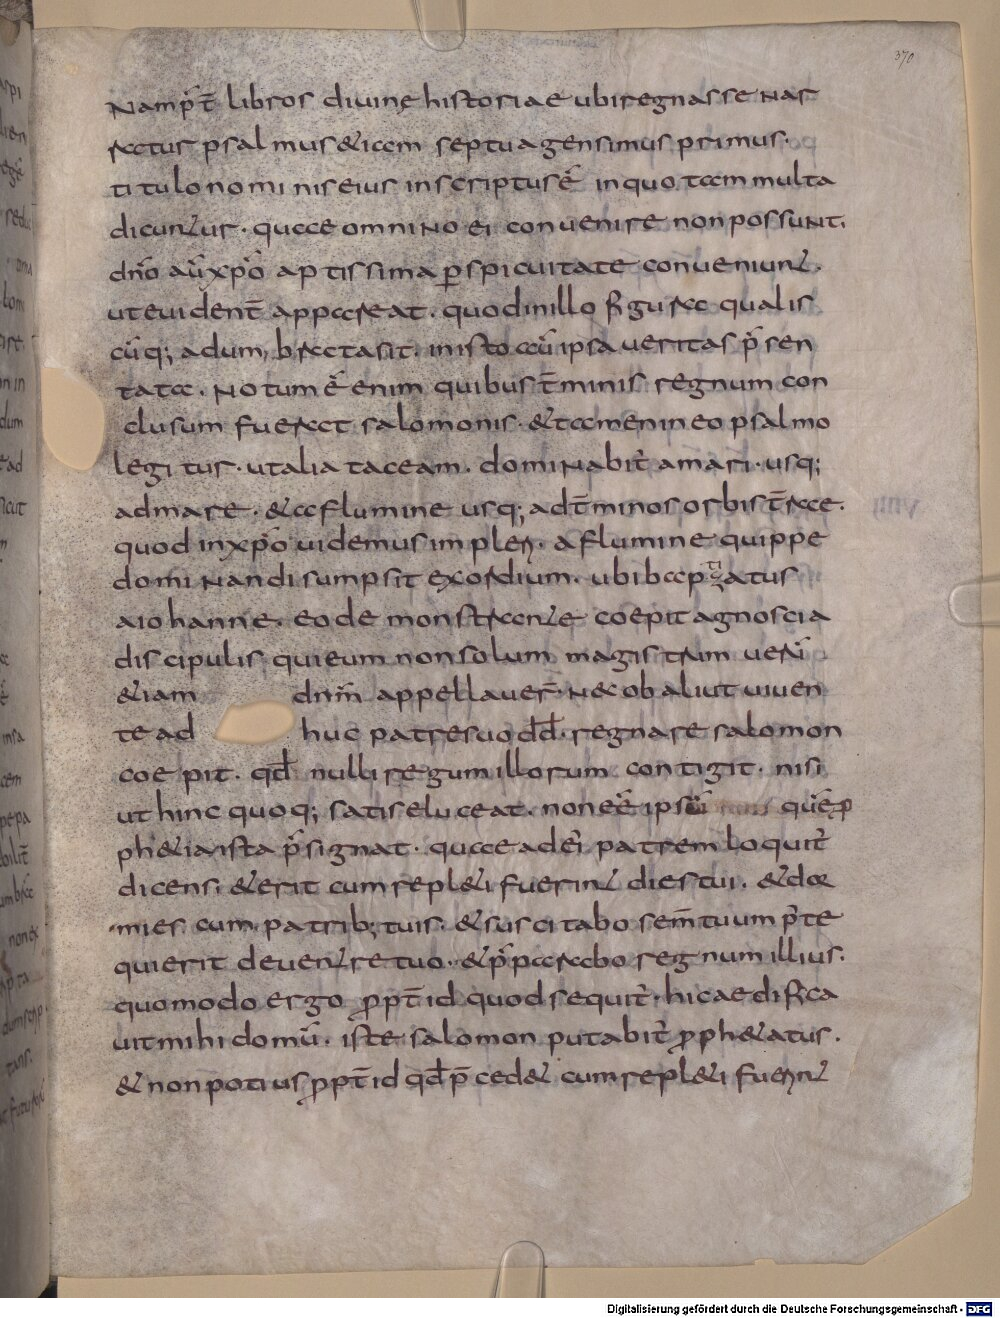 370
Nam p̄t̄ libros divinę historiae ubi regnasse nar
ratur psalmus & iam septuagensimus primus.
titulo nominis eius inscriptus ē in quo tam multa
dicuntur. quae omnino ei convenire non possunt.
dn̄o aū xp̄o aptissima ꝑspicuitate conveniunt.
ut evident̄ appareat. quod in illo figura qualis
cūq; adumbrata sit. in isto aū ipsa veritas p̄sen
tata. Notum ē enim quibus t̄minis regnum con
clusum fuerat salomonis. & tamen in eo psalmo
legitur. ut alia taceam. dominabit̄ a mari. usq;
ad mare. & a flumine usq; ad t̄minos orbis t̄rae.
quod in xp̄o videmus impleri. a flumine quippe
dominandi sumpsit exordium. ubi baptizatus
a iohanne. eodem monstrante coepit agnosci a
discipulis qui eum non solum magistrum verū
&iam dn̄m appellaver̄. Nec ob aliut viven
te adhuc patre suo dd̄. regnare salomon
coepit. qd̄ nulli regum illorum contigit. nisi
ut hinc quoq; satis eluceat. non eē ipsū quē ꝓ
ph&ia ista p̄signat. quae ad ei' patrem loquit̄
dicens. & erit cum repl&i fuerint dies tui. & dor
mies cum patrib; tuis. & suscitabo sem̄ tuum p̄ te
qui erit de ventre tuo. & p̄parabo regnum illius.
quomodo ergo ꝓpt̄ id quod sequit̄. hic aedifica
vit mihi domū. iste salomon putabit̄ ꝓph&atus.
& non potius ꝓpt̄ id qd̄ p̄ced& cum repl&i fuerint
Digitalisierung gefördert durch die Deutsche Forschungsgemeinschaft - DFG